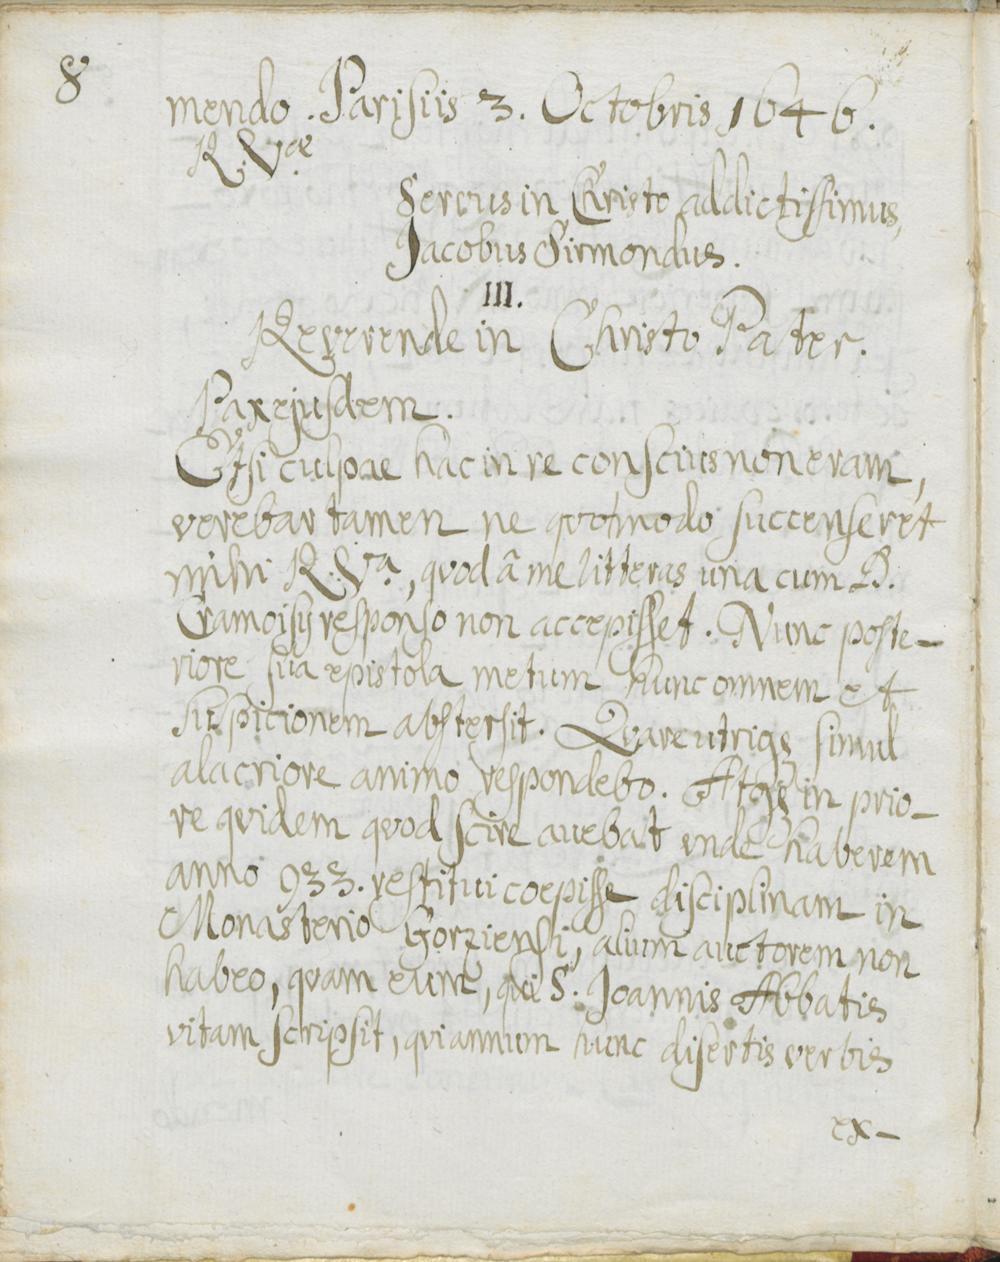 8
mendo. Parisiis 3. Octobris 1646.
R. Væ
Servus in Christo addictissimus,
Jacobus Sirmondus.
III.
Reverende in Christo Pater.
Pax ejusdem.
Etsi culpae hac in re conscius non eram,
verebar tamen ne quomodo succenseret
mihi R. Va, quod â me litteras una cum D.
Cramoisij responso non accepisset. Nunc poste-
riore sua epistola metum hunc omnem et
suspicionem abstersit. Quare utriq; simul
alacriore animo respondebo. Atq; in prio-
re quidem quod scire avebat unde haberem
anno 933. restitui coepisse disciplinam in
Monasterio Gorziensi, alium auctorem non
habeo, quam eum, qui S. Joannis Abbatis
vitam scripsit, qui annum hunc disertis verbis
ex-